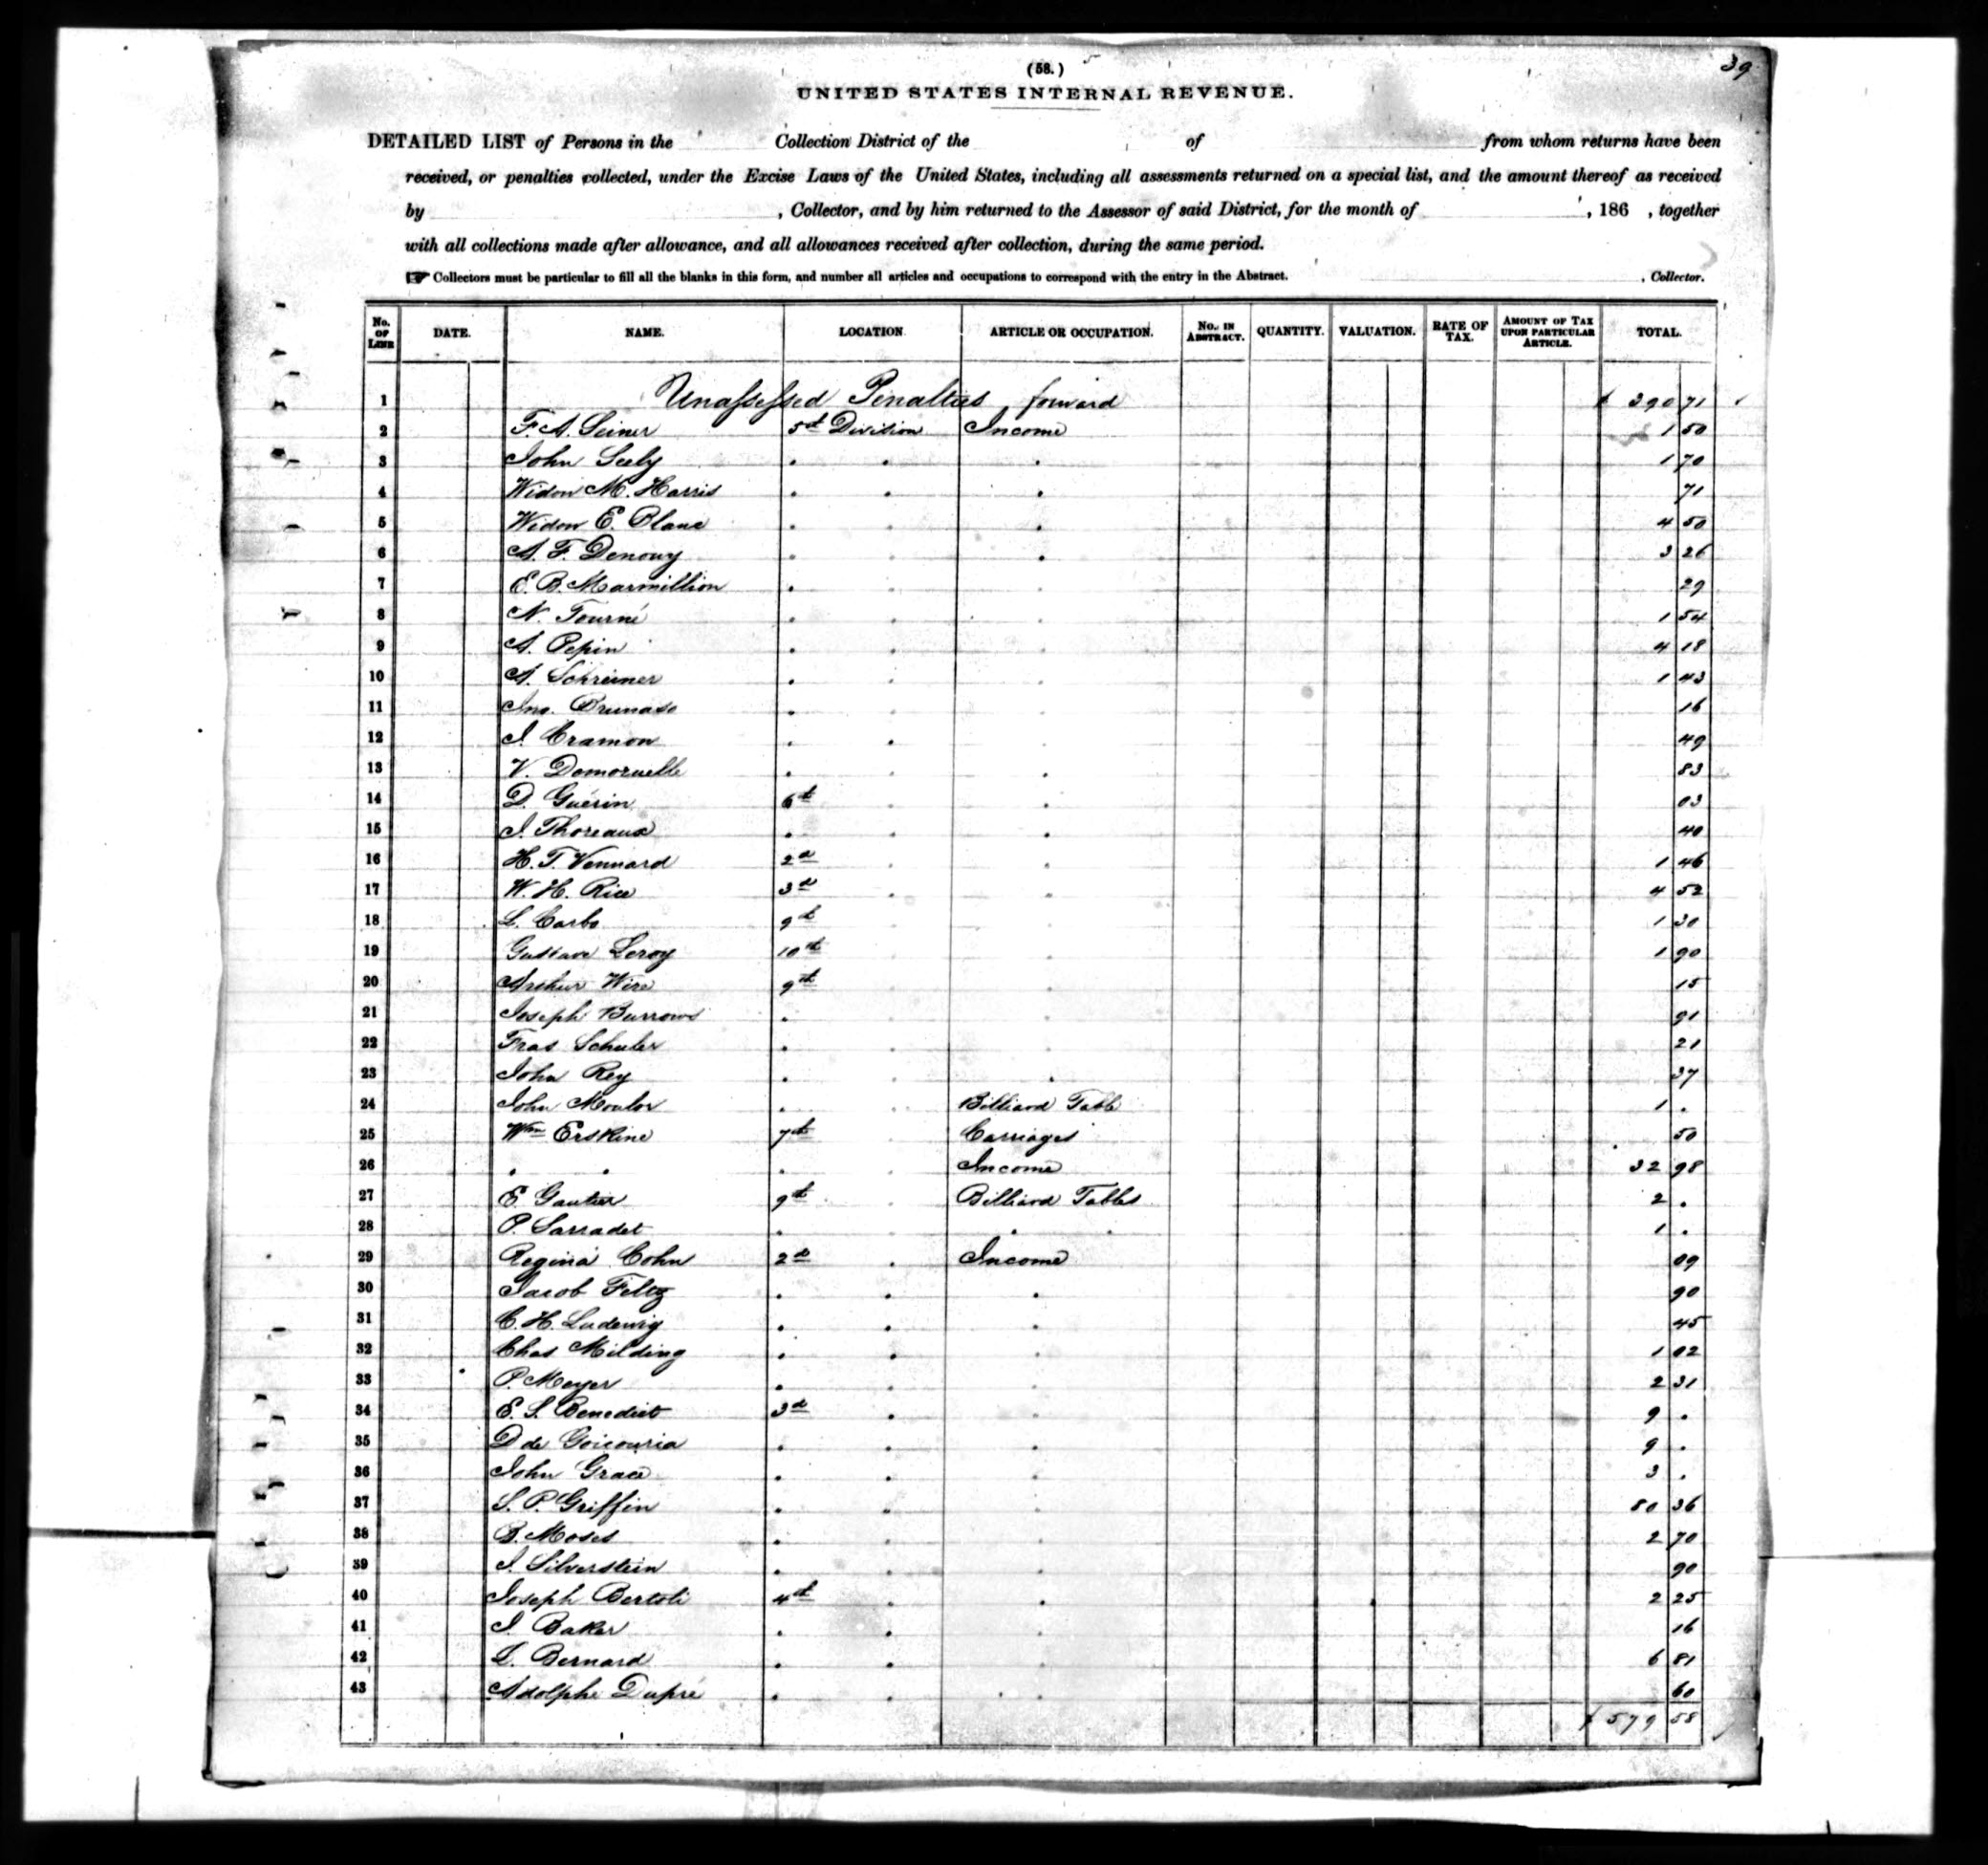 39
(58.)
UNITED STATES INTERNAL REVENUE.
DETAILED LIST of Persons in the Collection District of the of from whom returns have been
received, or penalties collected, under the Excise Laws of the United States, including all assessments returned on a special list, and the amount thereof as received
by , Collector, and by him returned to the Assessor of said District, for the month of , 186 , together
with all collections made after allowance, and all allowances received after collection, during the same period.
☞ Collectors must be particular to fill all the blanks in this form, and number all articles and occupations to correspond with the entry in the Abstract. , Collector.
No. OF LINE DATE. NAME. LOCATION. ARTICLE OR OCCUPATION. No. IN ABSTRACT. QUANTITY. VALUATION. RATE OF TAX. AMOUNT OF TAX UPON PARTICULAR ARTICLE. TOTAL.
1 Unassessed Penalties forward $ 390 71
2 F. A. Seiner 5th Division Income 1 50
3 John Seely . . . 1 70
4 Widow M. Harris . . . 71
5 Widow E. Blanc . . . 4 50
6 A. F. Denouy . . . 3 26
7 E. B. Marmillion . . . 29
8 N. Tourné . . . 1 54
9 A. Pepin . . . 4 18
10 A. Schreiner . . . 1 43
11 Jno. Brunaso . . . 16
12 J. Cramon . . . 49
13 V. Domoruelle . . . 83
14 D. Guérin 6th . . 03
15 J. Thoreaux . . . 40
16 H. T. Vennard 2d . . 1 46
17 W. H. Rice 3d . . 4 52
18 L. Carbo 9th . . 1 30
19 Gustave Leroy 10th . . 1 90
20 Arthur Wire 9th . . 15
21 Joseph Burrows . . . 91
22 Fras Schuler . . . 21
23 John Rey . . . 37
24 John Moulor . . Billiard Table 1 .
25 Wm Erskine 7th . Carriages 50
26 . . . . Income 32 98
27 E Gautier 9th . Billiard Tables 2 .
28 P. Sarradet . . . . 1 .
29 Regina Cohn 2d . Income 09
30 Jacob Feltz . . . 90
31 C. H. Ludewig . . . 45
32 Chas Milding . . . 1 02
33 P. Meyer . . . 2 31
34 E. S. Benedict 3d . . 9 .
35 D de Goicouria . . . 9 .
36 John Grace . . . 3 .
37 S. P. Griffin . . . 80 36
38 B. Moses . . . 2 70
39 J. Silverstein . . . 90
40 Joseph Bertoli 4th . . 2 25
41 J. Baker . . . 16
42 L. Bernard . . . 6 81
43 Adolphe Dupré . . . 60
$ 579 58